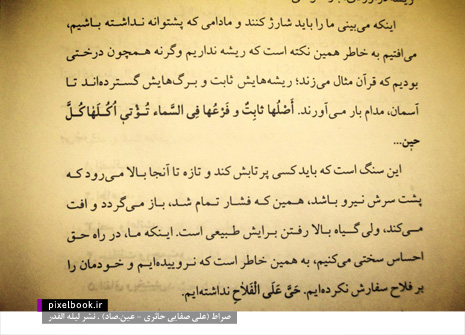 اینکه می‌بینی ما را باید شارژ کنند و مادامی که پشتوانه نداشته باشیم،
می‌افتیم به خاطر همین نکته است که ریشه نداریم وگرنه همچون درختی
بودیم که قرآن مثال می‌زند؛ ریشه‌هایش ثابت و برگ‌هایش گسترده‌اند تا
آسمان، مدام بار می‌آورند. أَصْلُها ثابِتٌ و فَرْعُها فِی السَّماء تُؤْتي أُكُلَهٰا كُلَّ
حينٍ...
این سنگ است که باید کسی پرتابش کند و تازه تا آنجا بالا می‌رود که
پشت سرش نیرو باشد، همین که فشار تمام شد، باز می‌گردد و افت
می‌کند، ولی گیاه بالا رفتن برایش طبیعی است. اینکه ما، در راه حق
احساس سختی می‌کنیم، به همین خاطر است که نروییده‌ایم و خودمان را
بر فلاح سفارش نکرده‌ایم. حَیَّ عَلَی الْفَلاَحِ نداشته‌ایم.
pixelbook.ir
صراط (علی صفایی حائری - عین.صاد) . نشر لیله القدر